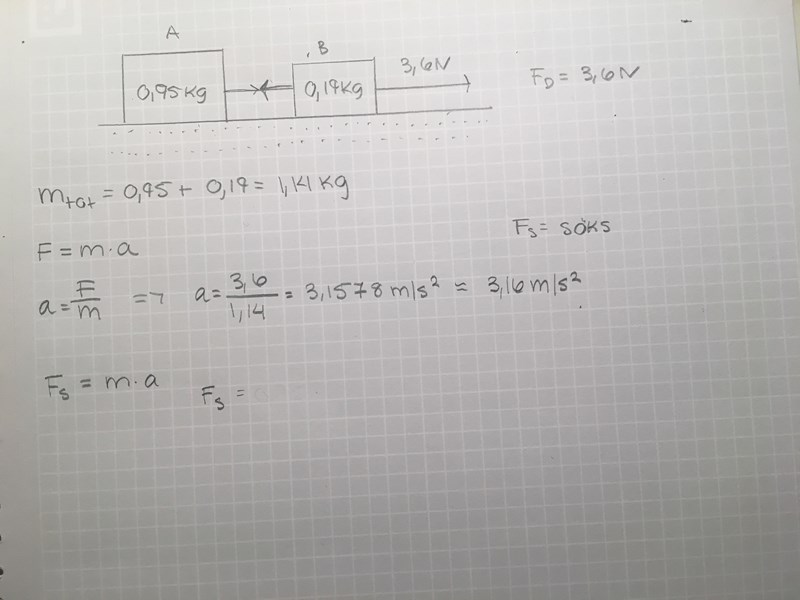 A
B
0,95 kg
0,19 kg
3,6N
F_D = 3,6N
m_tot = 0,95 + 0,19 = 1,14 kg
F_s = SÖKS
F = m · a
a = F/m => a = 3,6/1,14 = 3,1578 m/s² ≈ 3,16 m/s²
F_s = m · a F_s =